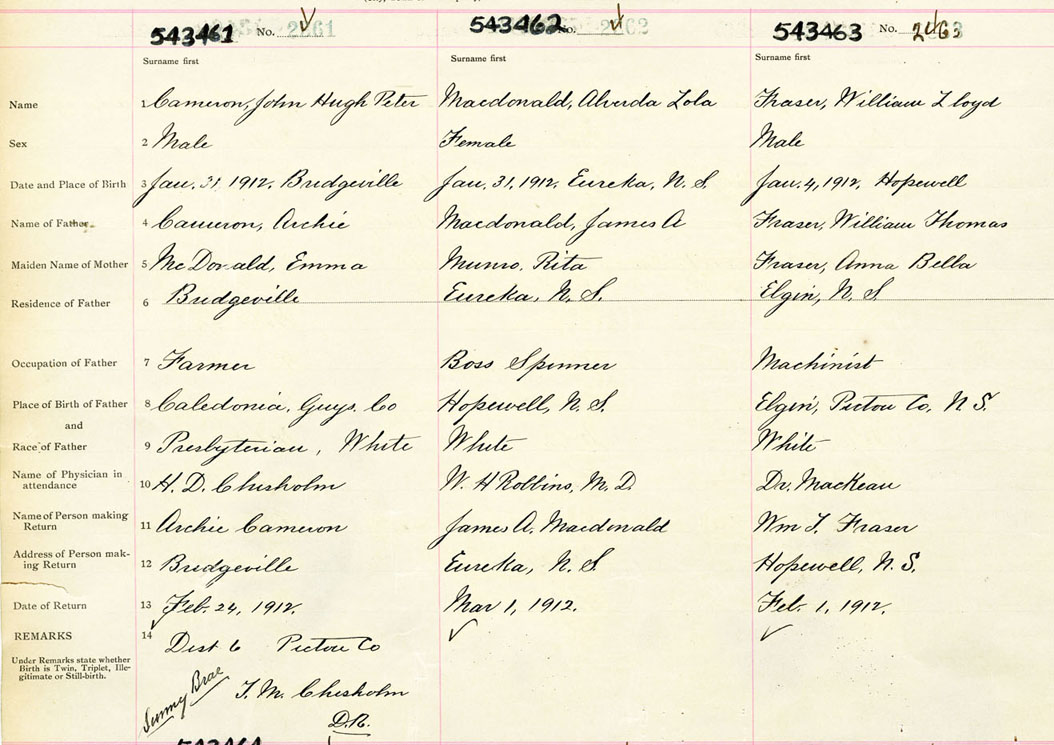 543461 No. 2261 543462 No. 2262 543463 No. 2263
Surname first Surname first Surname first
Name 1 Cameron, John Hugh Peter Macdonald, Alverda Lola Fraser, William Lloyd
Sex 2 Male Female Male
Date and Place of Birth 3 Jan. 31, 1912. Bridgeville Jan. 31, 1912, Eureka, N. S. Jan. 4, 1912, Hopewell
Name of Father 4 Cameron, Archie Macdonald, James A Fraser, William Thomas
Maiden Name of Mother 5 McDonald, Emma Munro, Rita Fraser, Anna Bella
Residence of Father 6 Bridgeville Eureka, N. S. Elgin, N. S.
Occupation of Father 7 Farmer Boss Spinner Machinist
Place of Birth of Father 8 Caledonia, Guys. Co Hopewell, N. S. Elgin, Pictou Co, N S.
and
Race of Father 9 Presbyterian, White White White
Name of Physician in
attendance 10 H. D. Chisholm W. H Robbins, M. D. Dr. MacKeau
Name of Person making
Return 11 Archie Cameron James A. Macdonald Wm T. Fraser
Address of Person mak-
ing Return 12 Bridgeville Eureka, N. S. Hopewell, N. S.
Date of Return 13 Feb. 24, 1912. Mar 1, 1912. Feb. 1, 1912.
REMARKS 14 Dist 6 Pictou Co
Under Remarks state whether
Birth is Twin, Triplet, Ille-
gitimate or Still-birth.
Sunny Brae T. M. Chisholm
D.R.